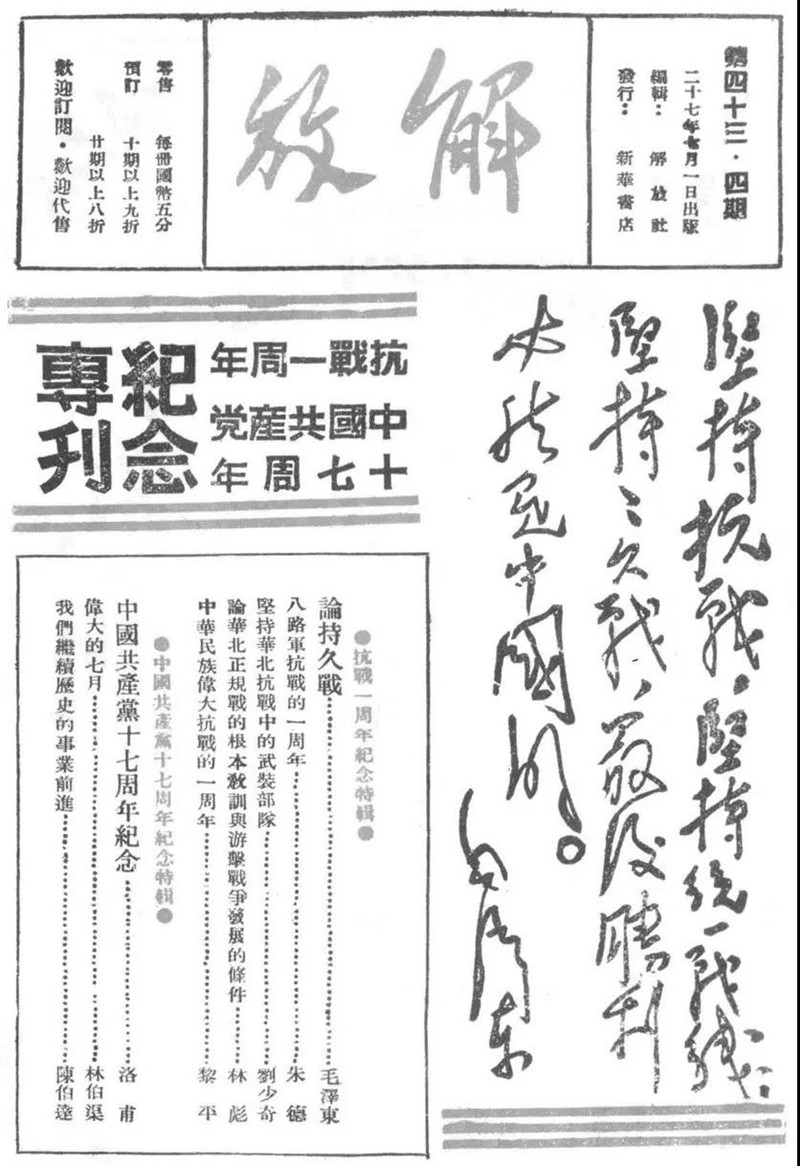 第四十三·四期
二十七年七月一日出版
編輯：解放社
發行：新華書店
解放
零售 每冊國幣五分
預訂 十期以上九折
廿期以上八折
歡迎訂閱·歡迎代售
堅持抗戰，堅持統一战线，
堅持持久戰，最后勝利
必然是中國的。
毛澤东
抗戰一周年
中國共產党
十七周年
紀念
專刊
●抗戰一周年紀念特輯●
論持久戰 毛澤東
八路軍抗戰的一周年 朱德
堅持華北抗戰中的武裝部隊 劉少奇
論華北正規戰的根本教訓與游擊戰爭發展的條件 林彪
中華民族偉大抗戰的一周年 黎平
●中國共產黨十七周年紀念特輯●
中國共產黨十七周年紀念 洛甫
偉大的七月 林伯渠
我們繼續歷史的事業前進 陳伯達